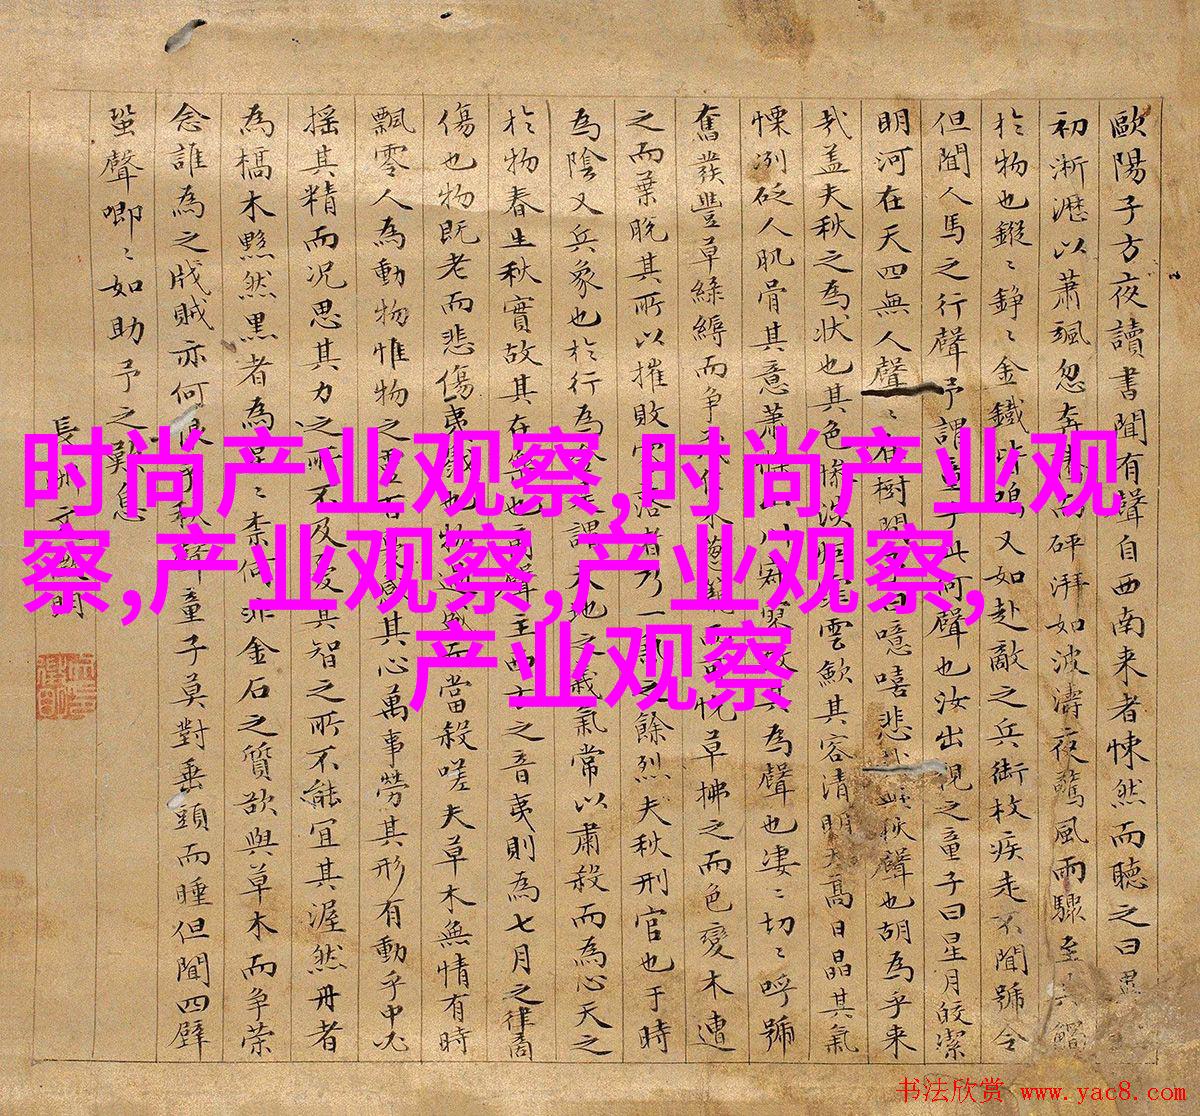 歐陽子方夜讀書聞有聲自西南来者悚然而聽之曰
初淅瀝以蕭颯忽奔而砰湃如波濤夜驚風雨驟至
於物也鏦〻錚〻金鐵皆鳴又如赴敵之兵銜枚疾走不聞號令
但聞人馬之行聲予謂童子此何聲也汝出視之童子曰星月皎潔
明河在天四無人聲〻在樹間曰噫嘻悲秋聲也胡為乎来
哉盖夫秋之為状也其色惨淡煙霏雲歛其容清明天高日晶其氣
慄冽砭人肌骨其意蕭條山川寂寥故其為聲也凄〻切〻呼號
奮發豐草綠縟而争茂佳木葱蘢而可悅草拂之而色變木遭
之而葉脱其所以摧敗零落者乃一氣之餘烈夫秋刑官也于時
為陰又兵象也於行為金是謂天地之義氣常以肅殺而為心天之
於物春生秋實故其在樂也商聲主西方之音夷則為七月之律商
傷也物既老而悲傷夷戮也物過盛而當殺嗟夫草木無情有時
飄零人為動物惟物之靈百憂感其心萬事勞其形有動乎中必
摇其精而况思其力之所不及憂其智之所不能宜其渥然丹者
為槁木黟然黒者為星〻柰何非金石之質欲與草木而争荣
念誰為之戕賊亦何恨乎秋聲童子莫對垂頭而睡但聞四壁
蛩聲唧〻如助予之歎息
長洲文徵明
时尚产业观察,时尚产业观
察,产业观察,产业观察,
产业观察
书法欣赏 www.yac8.com